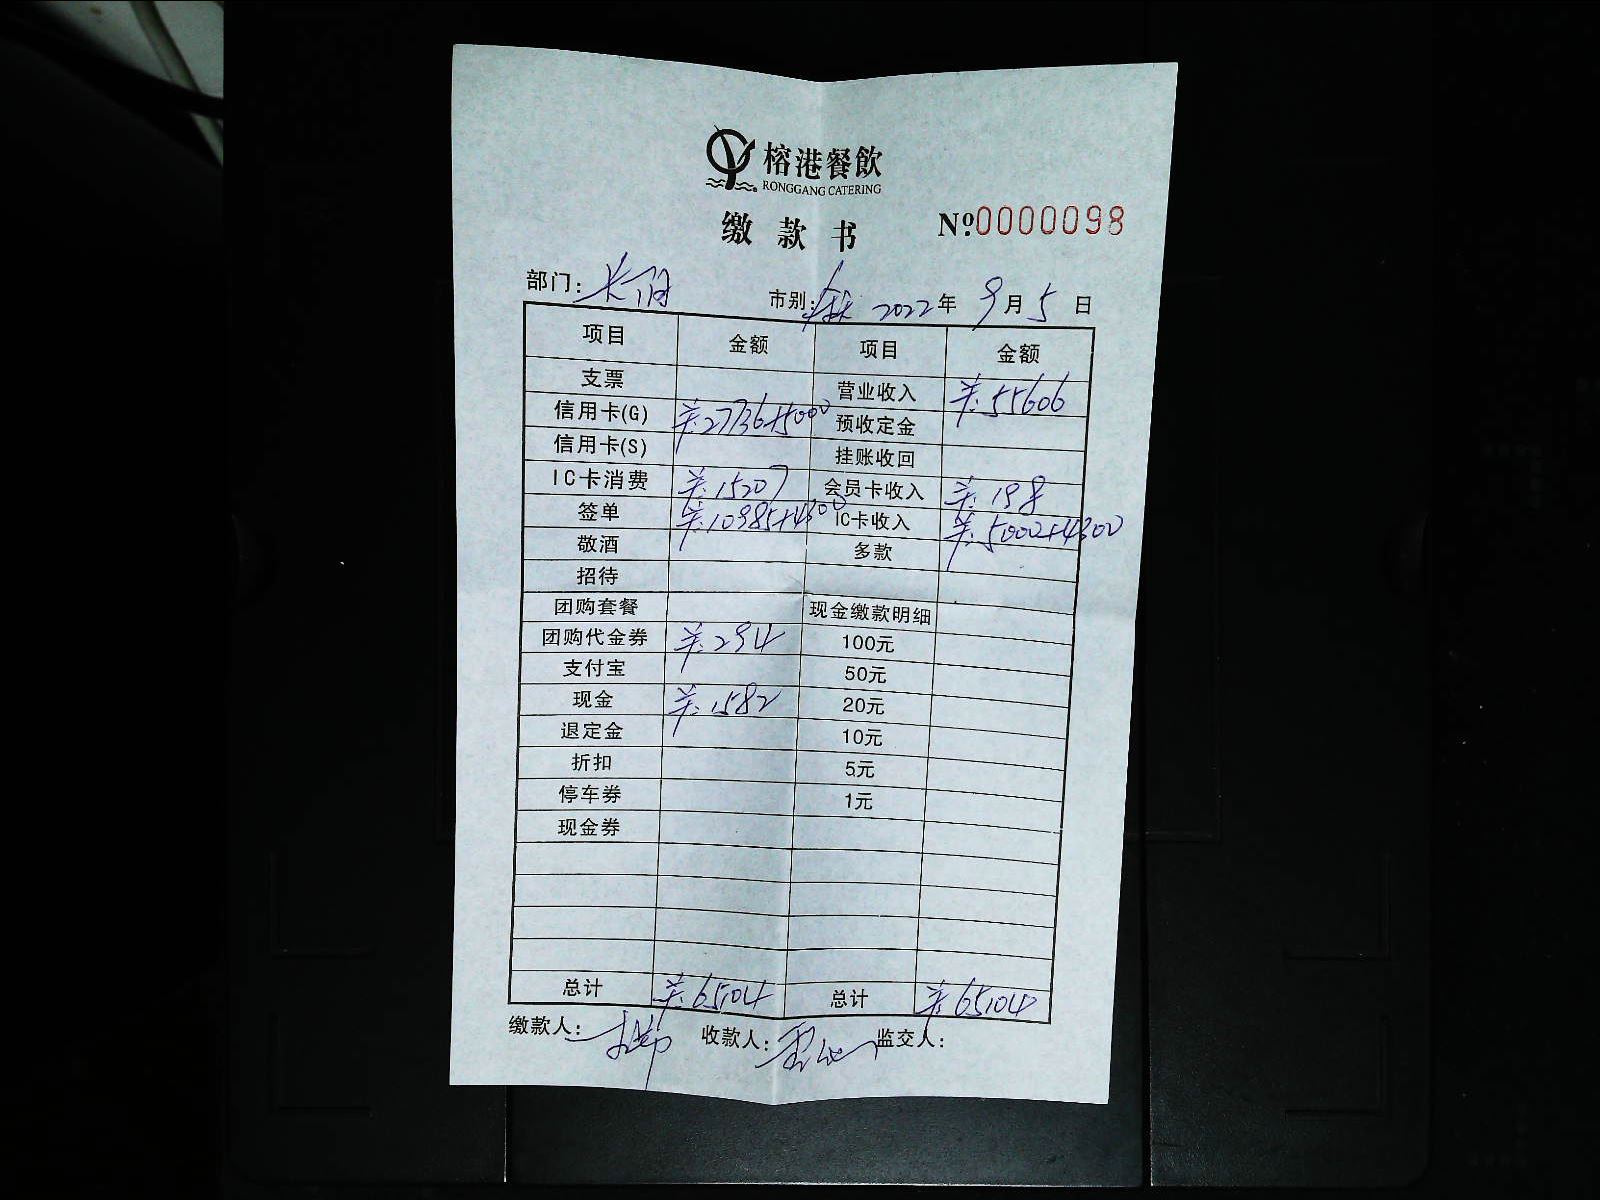 榕港餐飲
RONGGANG CATERING
缴款书 Nº:0000098
部门: 市别: 2022年 9月5日
项目 金额 项目 金额
支票 营业收入 ¥:55606
信用卡(G) ¥:27736+5000 预收定金
信用卡(S) 挂账收回
IC卡消费 ¥:15207 会员卡收入 ¥:198
签单 ¥:10985+4300 IC卡收入 ¥:5000+4300
敬酒 多款
招待
团购套餐 现金缴款明细
团购代金券 ¥:294 100元
支付宝 50元
现金 ¥:1582 20元
退定金 10元
折扣 5元
停车券 1元
现金券
总计 ¥:65104 总计 ¥:65104
缴款人: 收款人: 监交人: